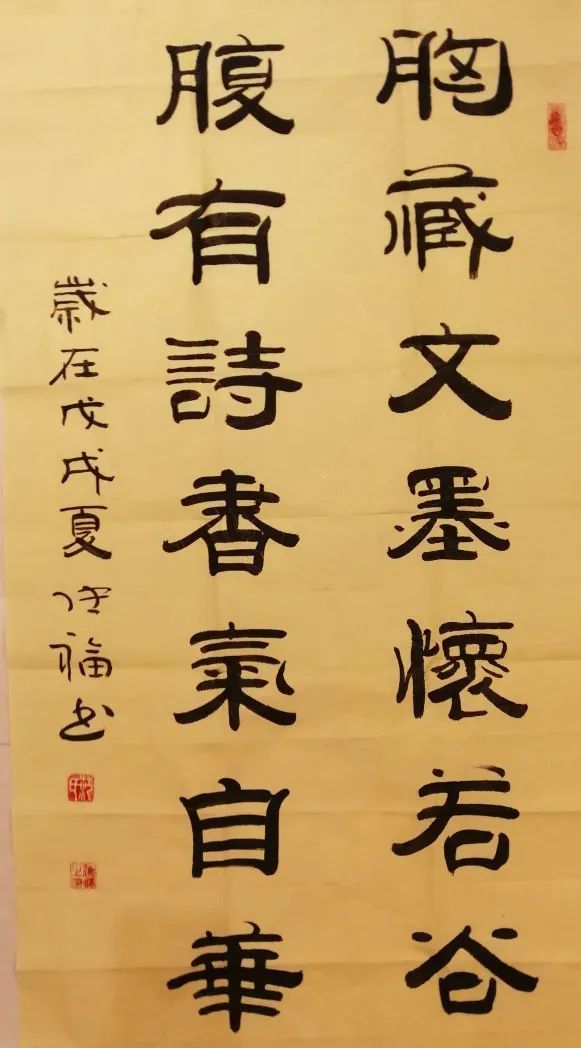 胸藏文墨懷若谷
腹有詩書氣自華
歲在戊戌夏 傳福书